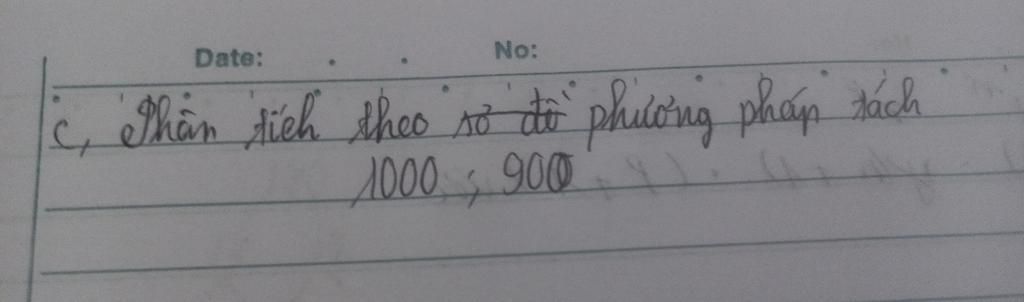 Date: . . No:
c, Phân tích theo sơ đồ phương pháp tách
1000 ; 900